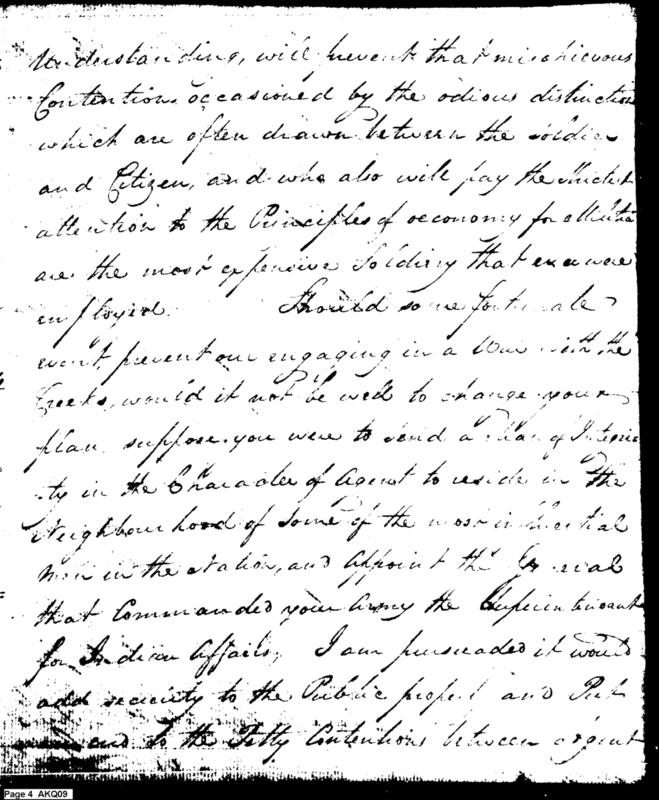 Understanding, will prevent that mischievous
Contention occasioned by the odious distinction
which are often drawn between the soldier
and Citizen, and who also will pay the strictest
attention to the Principles of oeconomy for Militia
are the most expensive Soldiery that ever were
employed. Should some fortunate
event, prevent our engaging in a War with the
Creeks, would it not be well to change your
plan. suppose you were to send a Man of Integri
ty in the Character of Agent to reside in the
Neighbourhood of some of the most influential
Men in the Nation, and appoint the General
that Commanded your Army the Superintendant
for Indian Affairs, I am persuaded it would
add security to the Public property and Put
an end to the Petty Contentions between Agent
Page 4 AKQ09